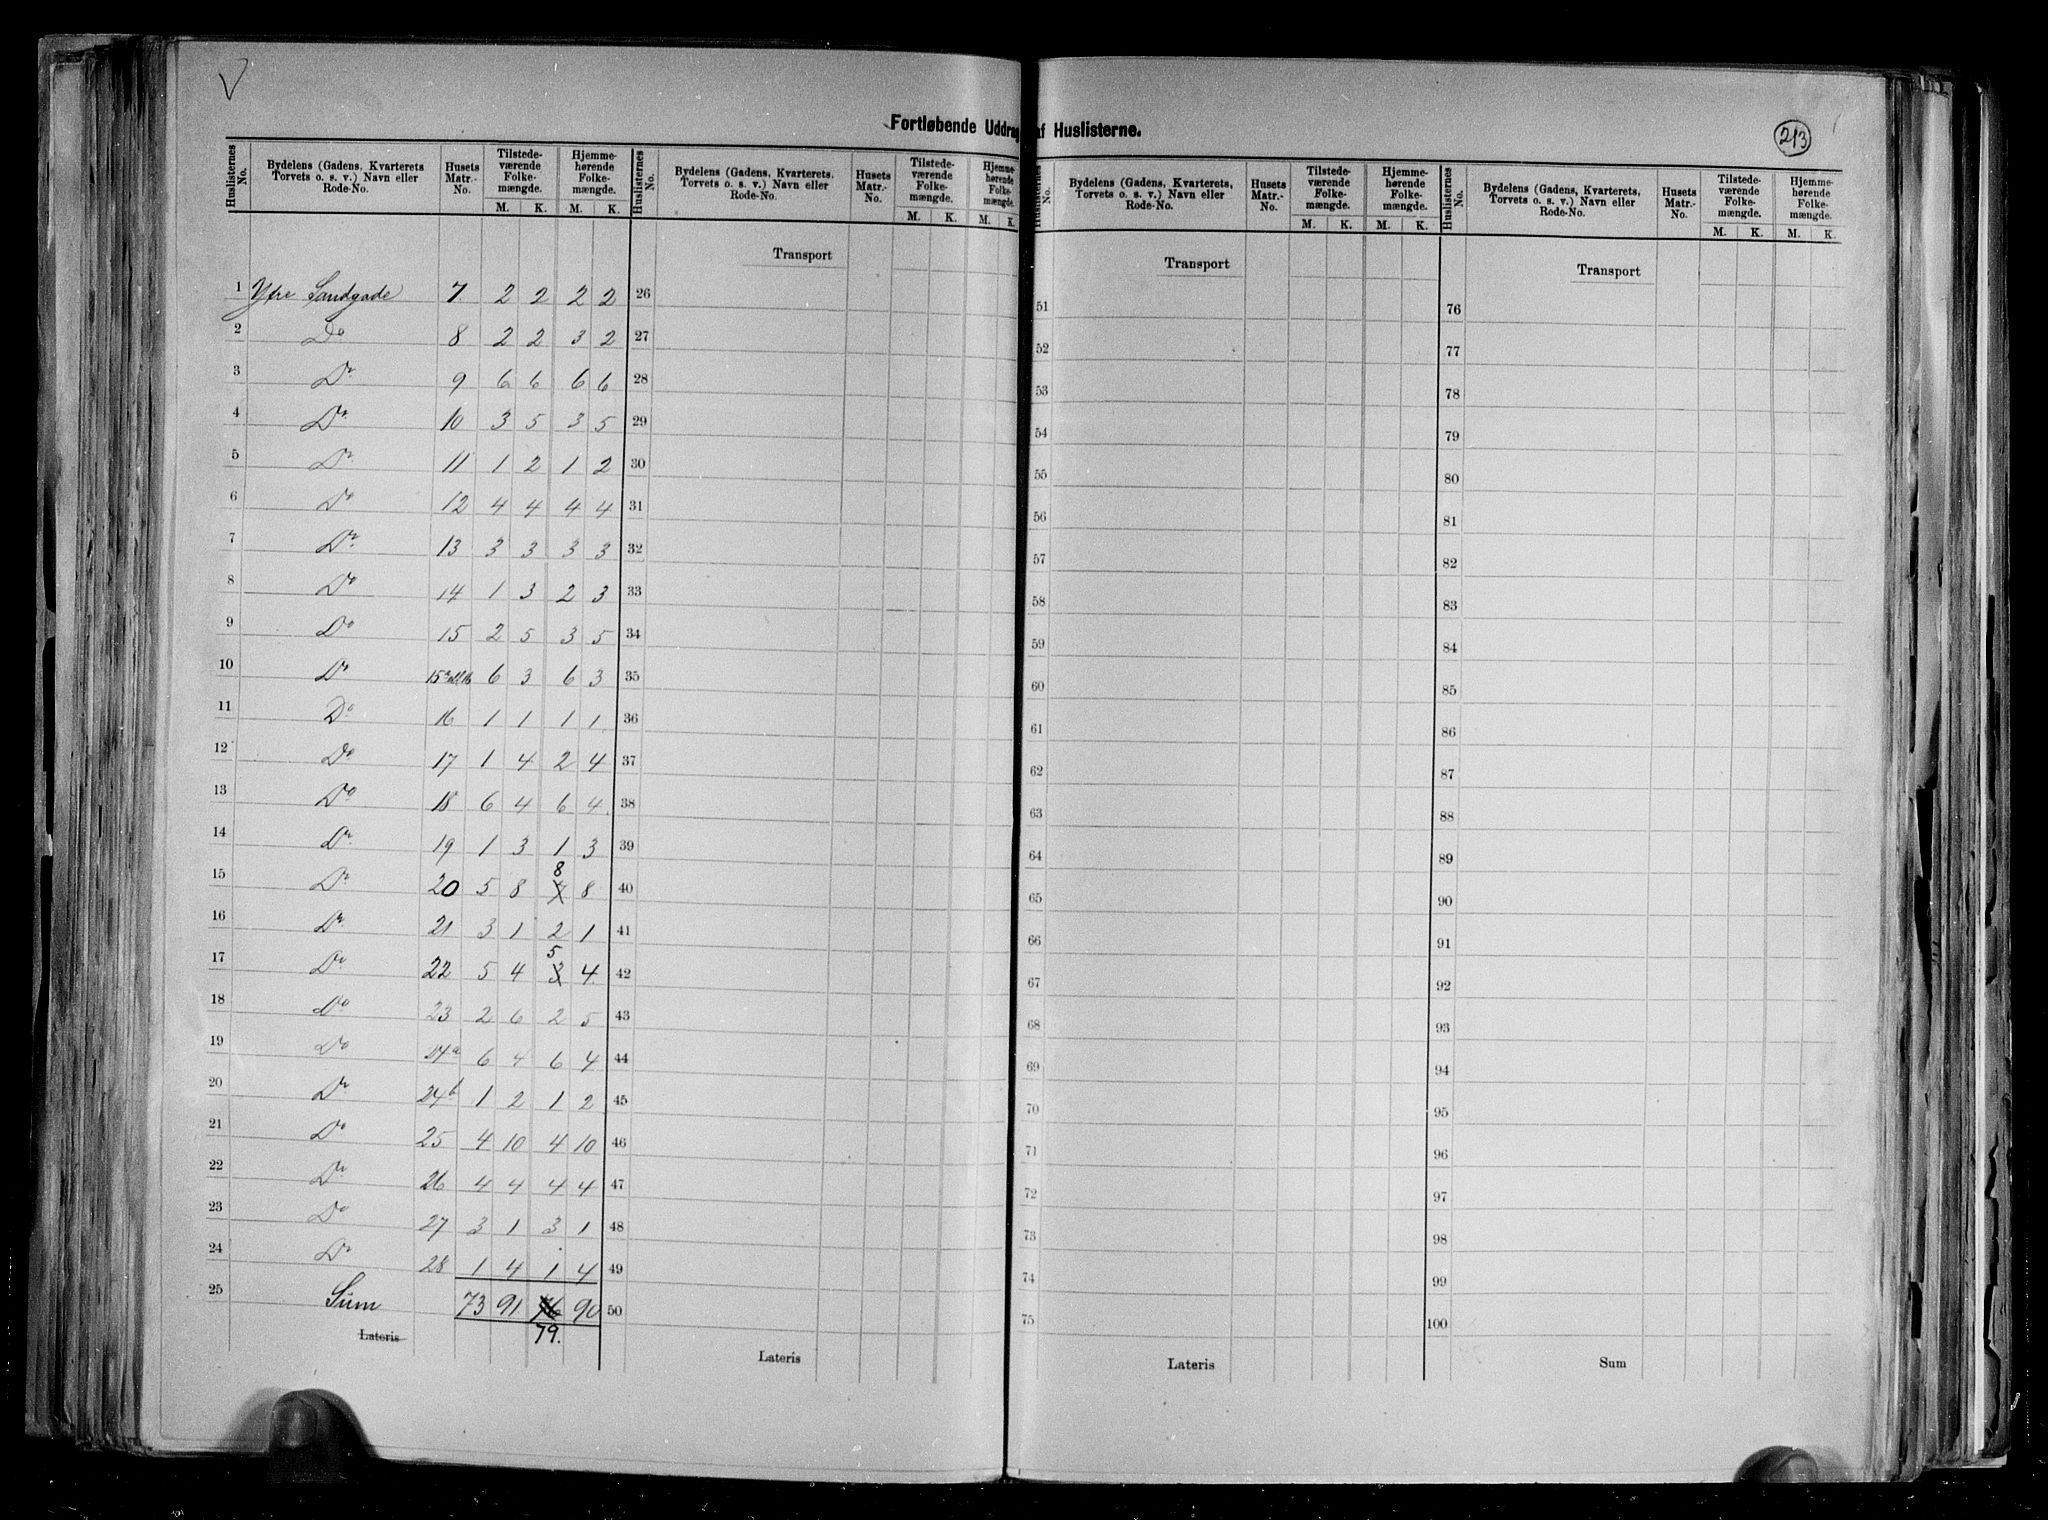 Fortløbende Uddrag af Huslisterne.
213
Huslisternes No. | Bydelens (Gadens, Kvarterets Torvets o. s. v.) Navn eller Rode-No. | Husets Matr.-No. | Tilstedeværende Folkemængde. M. K. | Hjemmehørende Folkemængde. M. K.
1 Yfre Sandgade 7 2 2 2 2
2 Do 8 2 2 3 2
3 Do 9 6 6 6 6
4 Do 10 3 5 3 5
5 Do 11 1 2 1 2
6 Do 12 4 4 4 4
7 Do 13 3 3 3 3
8 Do 14 1 3 2 3
9 Do 15 2 5 3 5
10 Do 6 3 6 3
11 Do 16 1 1 1 1
12 Do 17 1 4 2 4
13 Do 18 6 4 6 4
14 Do 19 1 3 1 3
15 Do 20 5 8 8 8
16 Do 21 3 1 2 1
17 Do 22 5 4 5 3 4
18 Do 23 2 6 2 5
19 Do 24a 6 4 6 4
20 Do 24b 1 2 1 2
21 Do 25 4 10 4 10
22 Do 26 4 4 4 4
23 Do 27 3 1 3 1
24 Do 28 1 4 1 4
25 Sum 73 91 76 90
Lateris 79.
Huslisternes No. | Bydelens (Gadens, Kvarterets, Torvets o. s. v.) Navn eller Rode-No. | Husets Matr.-No. | Tilstedeværende Folkemængde. M. K. | Hjemmehørende Folkemængde. M. K.
Transport
26
27
28
29
30
31
32
33
34
35
36
37
38
39
40
41
42
43
44
45
46
47
48
49
50
Lateris
Huslisternes No. | Bydelens (Gadens, Kvarterets, Torvets o. s. v.) Navn eller Rode-No. | Husets Matr.-No. | Tilstedeværende Folkemængde. M. K. | Hjemmehørende Folkemængde. M. K.
Transport
51
52
53
54
55
56
57
58
59
60
61
62
63
64
65
66
67
68
69
70
71
72
73
74
75
Lateris
Huslisternes No. | Bydelens (Gadens, Kvarterets, Torvets o. s. v.) Navn eller Rode-No. | Husets Matr.-No. | Tilstedeværende Folkemængde. M. K. | Hjemmehørende Folkemængde. M. K.
Transport
76
77
78
79
80
81
82
83
84
85
86
87
88
89
90
91
92
93
94
95
96
97
98
99
100
Sum